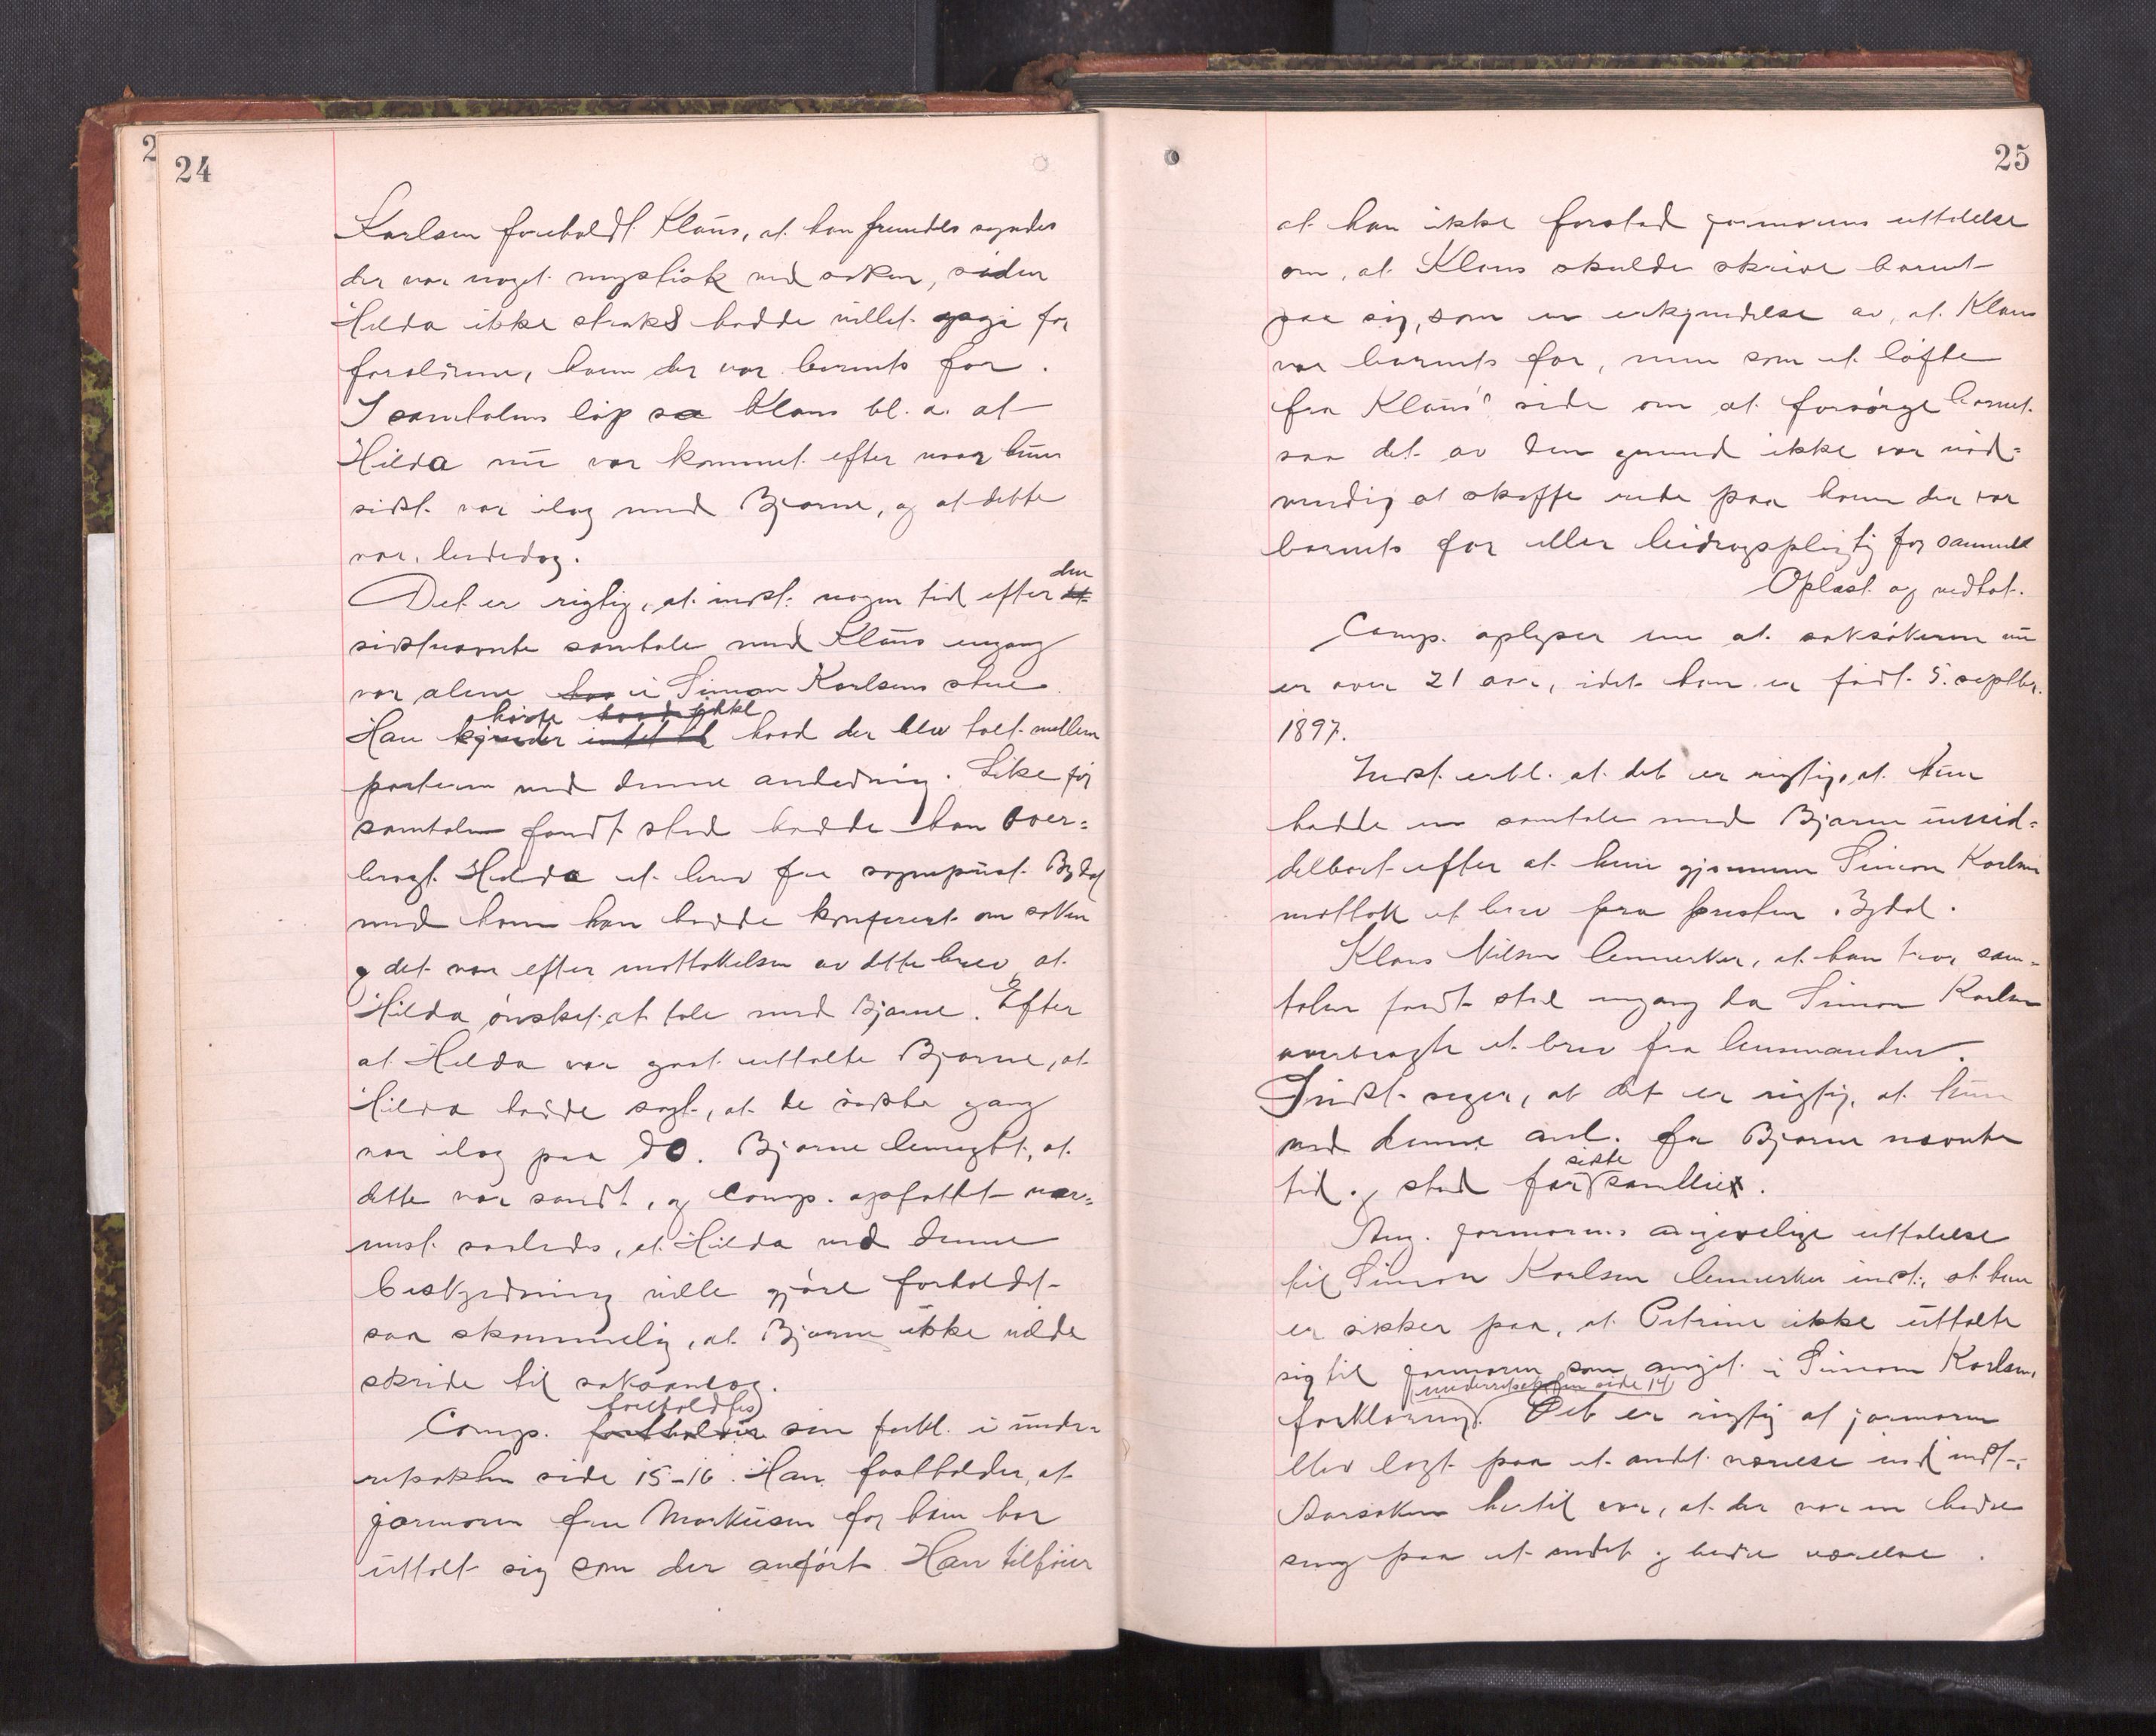 2
24
Karlsen foreholdt Klaus, at han fremdeles syndes
der var noget mystisk ved saken, siden
Hilda ikke straks hadde villet opgi for
forældrene, hvem der var barnets far.
I samtalens løp sa Klaus bl. a. at
Hilda nu var kommet efter naar hun
sidst var ilag med Bjarne, og at dette
var . . . dag.
Det er rigtig, at indst. nogen tid efter den
sidstnævnte samtale med Klaus engang
var alene hos i Simon Karlsens stue.
hørte hvad ikke
Han kjender intet til hvad der blev talt mellem
parterne ved denne anledning. Like før
samtalen fandt sted hadde han over-
bragt Hilda et brev fra sogneprest Bydal
med hvem han hadde konferert om saken
og det var efter mottakelsen av dette brev, at
Hilda ønsket at tale med Bjarne. Efter
at Hilda var gaat uttalte Bjarne, at
Hilda hadde sagt, at de sidste gang
var ilag paa do. Bjarne benegtet, at
dette var sandt, og Comp. opfattet nær-
mest saaledes, at Hilda ved denne
beskyldning vilde gjøre forholdet
saa skammelig, at Bjarne ikke vilde
skride til saksanlæg.
foreholdtes
Comp. fastholder sin forkl. i under-
retsakten side 15-16. Han fastholder, at
jormoren fru Markusen for ham har
uttalt sig som der anført. Han tilføier
25
at han ikke forstod jormorens uttalelse
om, at Klaus skulde skrive barnet
paa sig, som en erkjendelse av, at Klaus
var barnets far, men som et løfte
fra Klaus' side om at forsørge barnet
saa det av den grund ikke var nød-
vendig at skaffe rede paa hvem der var
barnets far eller bidragspligtig for samme
Oplæst og vedtat.
Comp. oplyser nu at saksøkeren nu
er over 21 aar, idet han er født 5. septbr.
1897.
Indst. erkl. at det er rigtig, at hun
hadde en samtale med Bjarne umid-
delbart efter at hun gjennem Simon Karlsen
mottok et brev fra presten Bydal.
Klaus Nilsen bemerker, at han tror sam-
talen fandt sted engang da Simon Karlsen
overbragte et brev fra lensmanden.
Indst. siger, at det er rigtig, at hun
ved denne anl. for Bjarne nævnte
siste
tid og sted for samleiet.
Ang. jormorens angivelige uttalelse
til Simon Karlsen bemerker indst., at hun
er sikker paa, at Petrine ikke uttalte
sig til jormoren som angit i Simon Karlsens
(underretsakten side 14)
forklaring. Det er rigtig at jormoren
blev lagt paa et andet værelse end indst.
Aarsaken hertil var, at der var en bedre
seng paa et andet og bedre værelse.